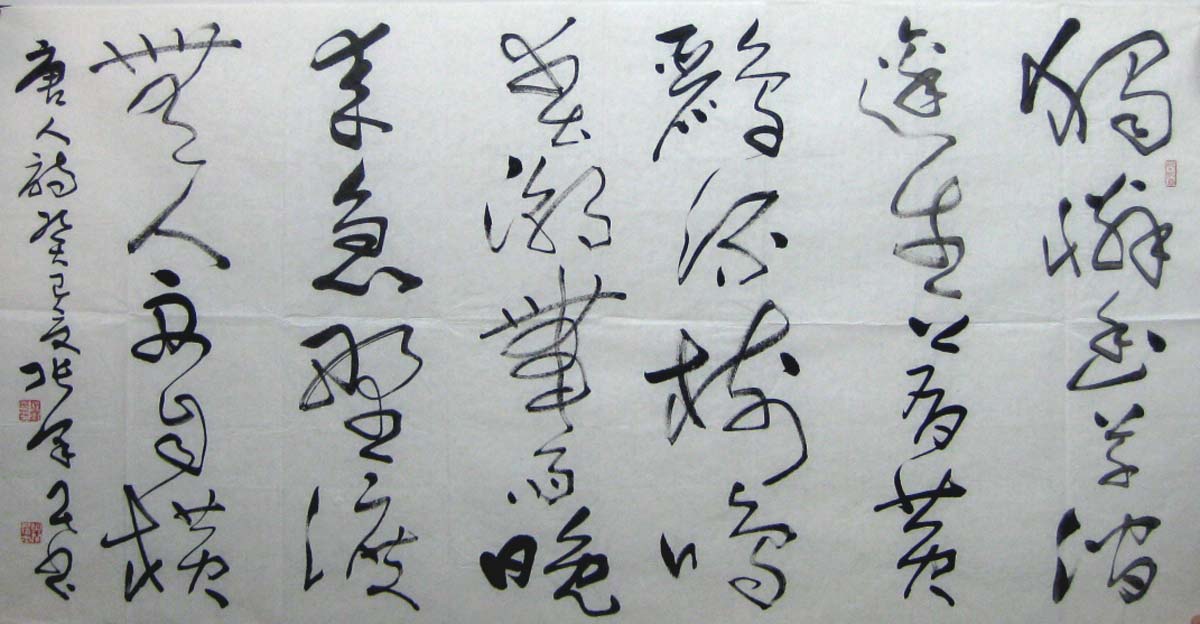 獨憐幽草澗
邊生上有黄
鸝深樹鳴
春潮帶雨晚
来急野渡
無人舟自横
唐人詩癸巳夏张